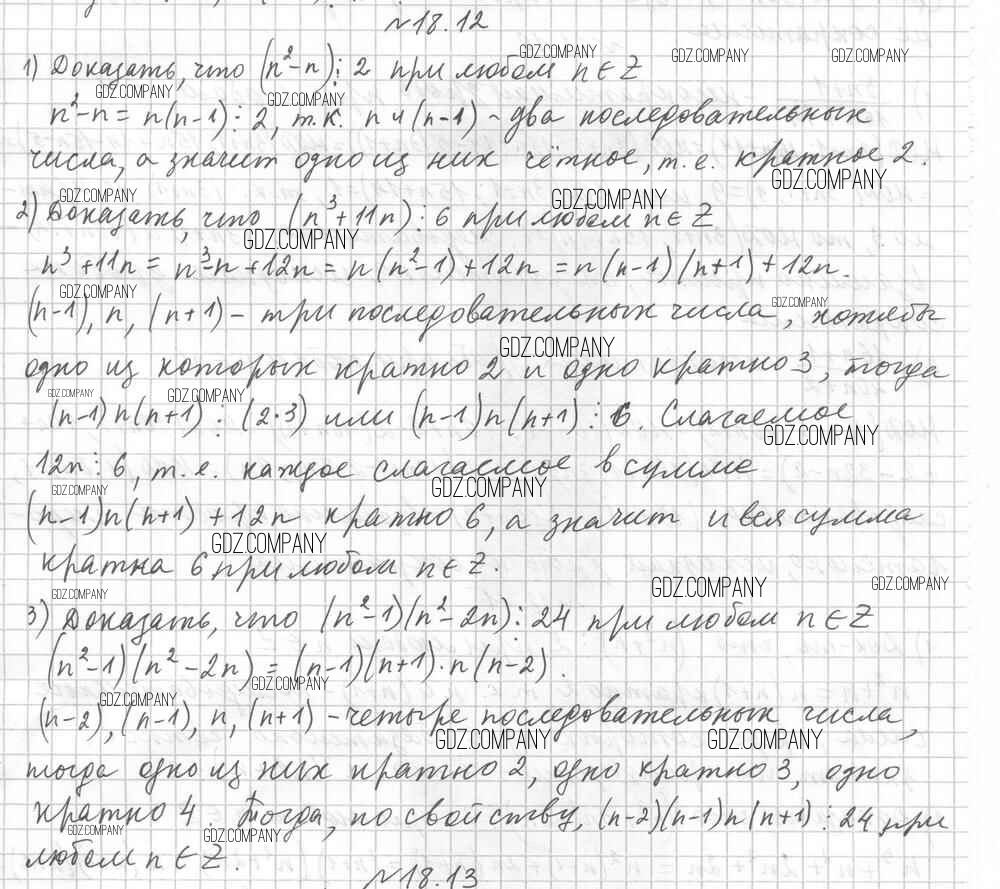 №18.12
1) Доказать, что (n²-n)⋮2 при любом n∈Z
n²-n = n(n-1)⋮2, т.к. n и (n-1) - два последовательных
числа, а значит одно из них чётное, т.е. кратное 2.
2) Доказать, что (n³+11n)⋮6 при любом n∈Z
n³+11n = n³-n+12n = n(n²-1)+12n = n(n-1)(n+1)+12n.
(n-1), n, (n+1) - три последовательных числа, хотябы
одно из которых кратно 2 и одно кратно 3, тогда
(n-1)n(n+1)⋮(2·3) или (n-1)n(n+1)⋮6. Слагаемое
12n⋮6, т.е. каждое слагаемое в сумме
(n-1)n(n+1)+12n кратно 6, а значит и вся сумма
кратна 6 при любом n∈Z.
3) Доказать, что (n²-1)(n²-2n)⋮24 при любом n∈Z
(n²-1)(n²-2n) = (n-1)(n+1)·n(n-2).
(n-2), (n-1), n, (n+1) - четыре последовательных числа,
тогда одно из них кратно 2, одно кратно 3, одно
кратно 4. Тогда, по свойству, (n-2)(n-1)n(n+1)⋮24 при
любом n∈Z.
№18.13
GDZ.COMPANY